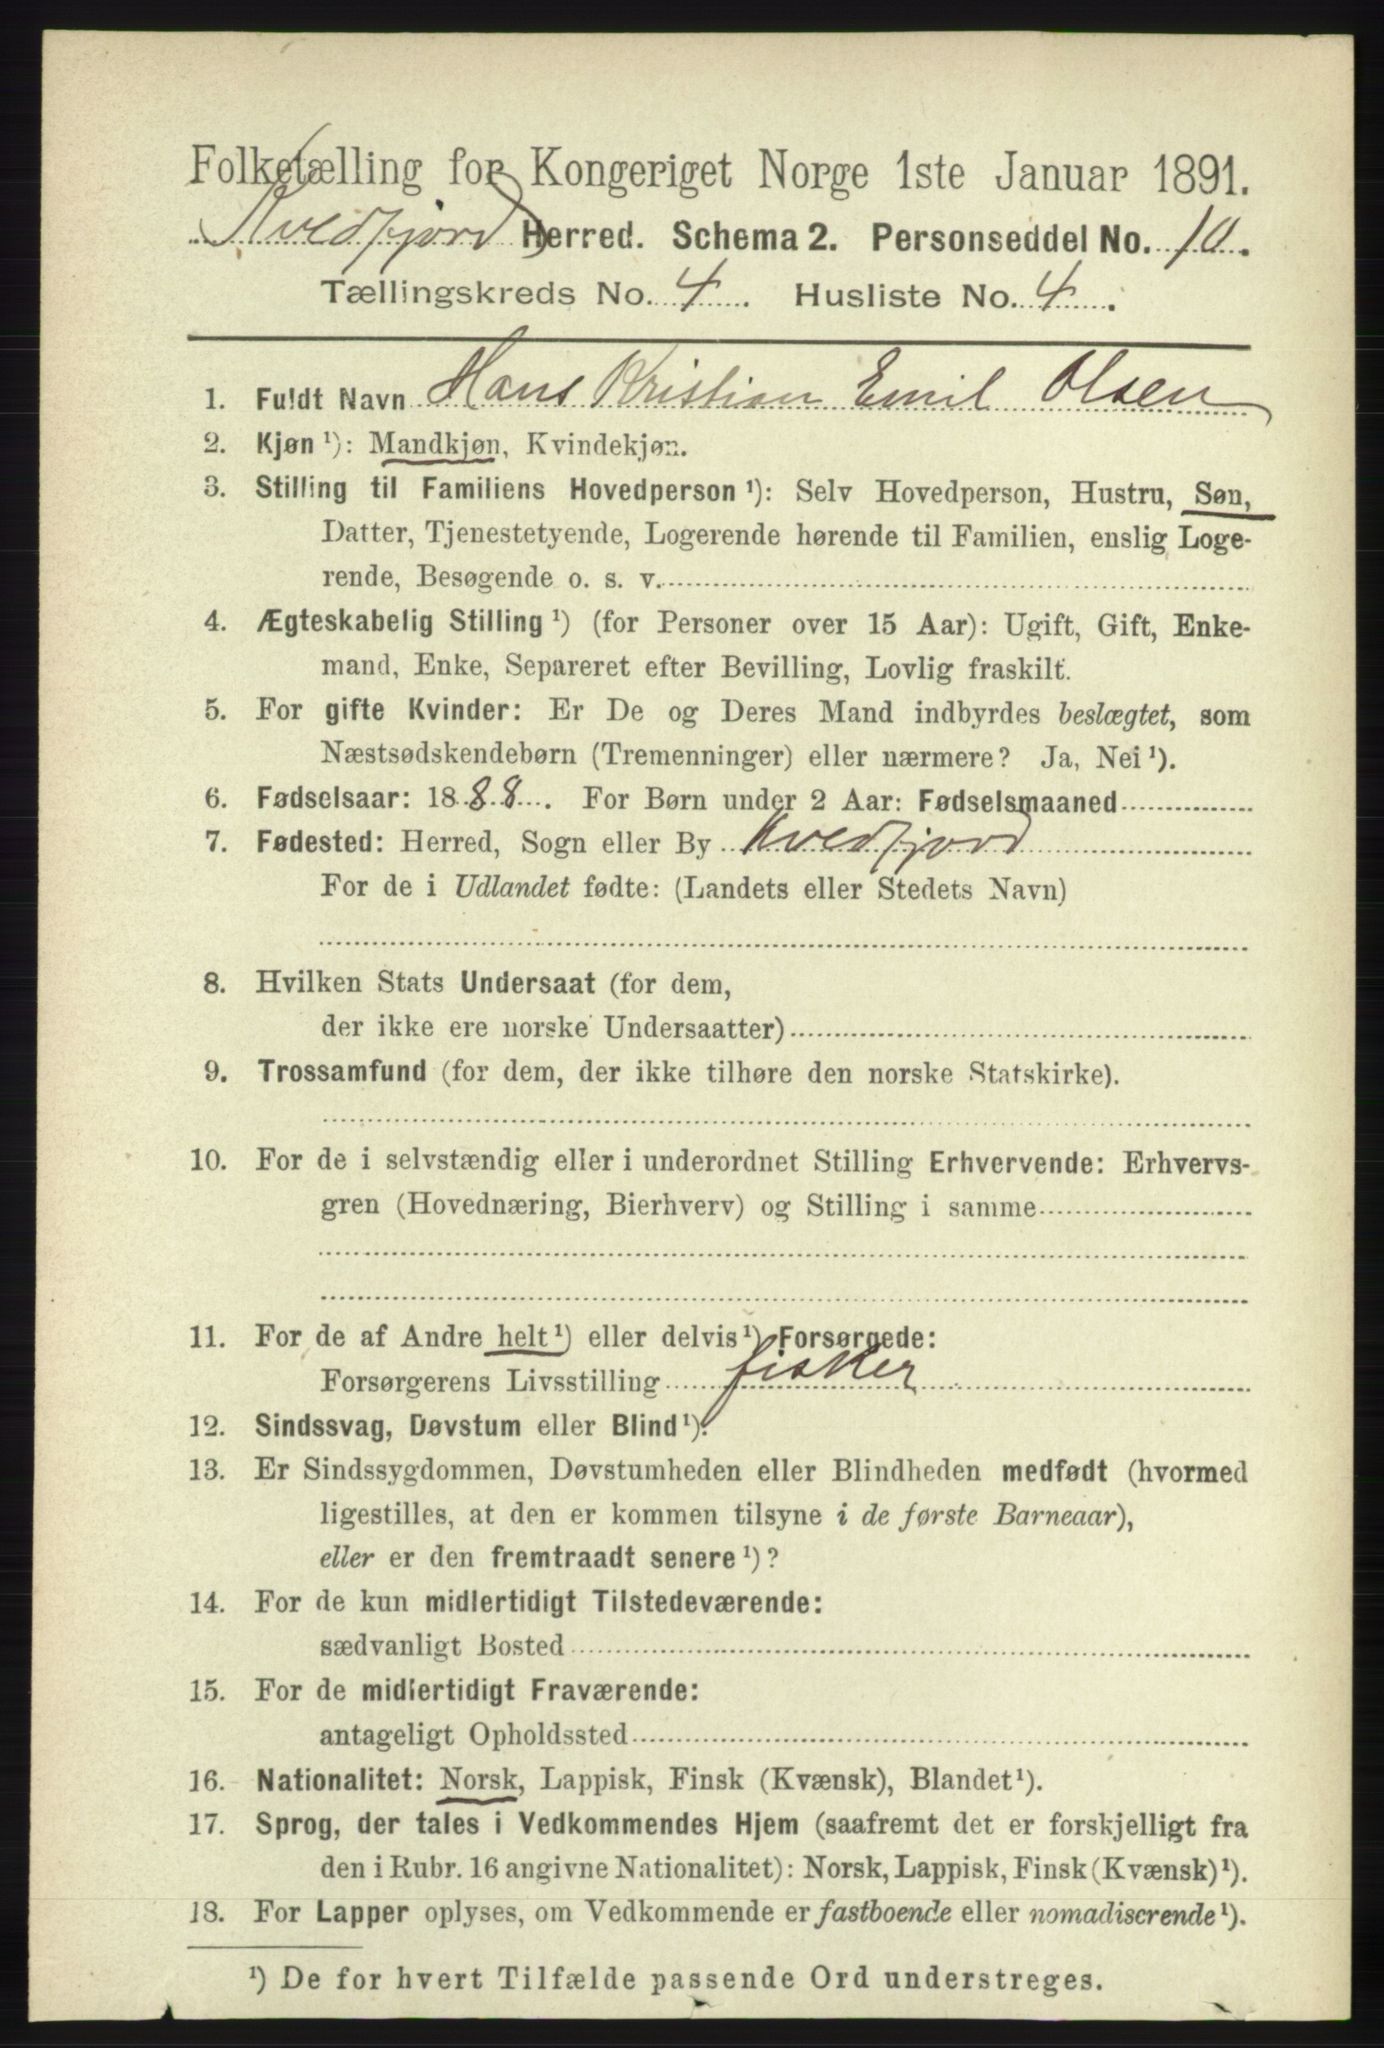 Folketælling for Kongeriget Norge 1ste Januar 1891.
Kvedfjord Herred. Schema 2. Personseddel No. 10.
Tællingskreds No. 4. Husliste No. 4.
1. Fuldt Navn Hans Kristian Emil Olsen
2. Kjøn ¹): Mandkjøn, Kvindekjøn.
3. Stilling til Familiens Hovedperson ¹): Selv Hovedperson, Hustru, Søn,
Datter, Tjenestetyende, Logerende hørende til Familien, enslig Loge-
rende, Besøgende o. s. v.
4. Ægteskabelig Stilling ¹) (for Personer over 15 Aar): Ugift, Gift, Enke-
mand, Enke, Separeret efter Bevilling, Lovlig fraskilt.
5. For gifte Kvinder: Er De og Deres Mand indbyrdes beslægtet, som
Næstsødskendebørn (Tremenninger) eller nærmere? Ja, Nei ¹).
6. Fødselsaar: 1888. For Børn under 2 Aar: Fødselsmaaned
7. Fødested: Herred, Sogn eller By Kvedfjord
For de i Udlandet fødte: (Landets eller Stedets Navn)
8. Hvilken Stats Undersaat (for dem,
der ikke ere norske Undersaatter)
9. Trossamfund (for dem, der ikke tilhøre den norske Statskirke).
10. For de i selvstændig eller i underordnet Stilling Erhvervende: Erhvervs-
gren (Hovednæring, Bierhverv) og Stilling i samme
11. For de af Andre helt ¹) eller delvis ¹) Forsørgede:
Forsørgerens Livsstilling fisker
12. Sindssvag, Døvstum eller Blind ¹).
13. Er Sindssygdommen, Døvstumheden eller Blindheden medfødt (hvormed
ligestilles, at den er kommen tilsyne i de første Barneaar),
eller er den fremtraadt senere ¹)?
14. For de kun midlertidigt Tilstedeværende:
sædvanligt Bosted
15. For de midlertidigt Fraværende:
antageligt Opholdssted
16. Nationalitet: Norsk, Lappisk, Finsk (Kvænsk), Blandet ¹).
17. Sprog, der tales i Vedkommendes Hjem (saafremt det er forskjelligt fra
den i Rubr. 16 angivne Nationalitet): Norsk, Lappisk, Finsk (Kvænsk) ¹).
18. For Lapper oplyses, om Vedkommende er fastboende eller nomadiserende ¹).
¹) De for hvert Tilfælde passende Ord understreges.